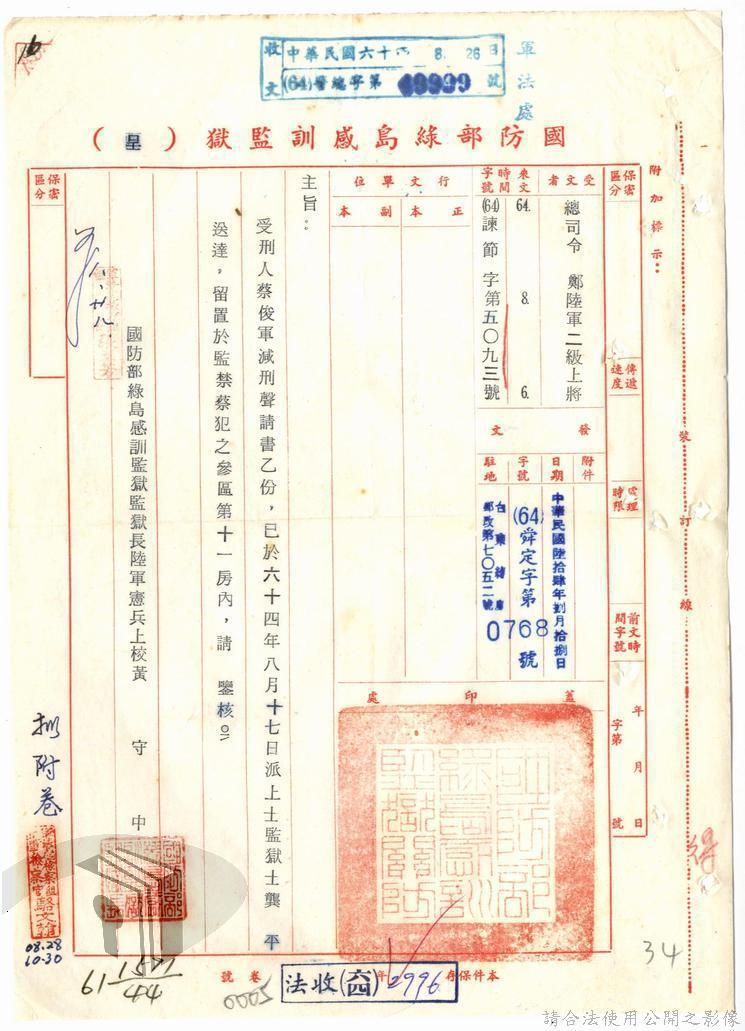 收文 中華民國六十四 8. 26日
(64)警總字第 49999 號
軍法處
國防部綠島感訓監獄（呈）
附加標示：
裝訂線
保密區分
傳遞速度
處理時限
前文時間字號
年 月 日
字第 號
受文者
總司令 鄭陸軍二級上將
來文
時間
64. 8. 6.
字號
(64)諫節字第五〇九三號
發文
附件
日期
中華民國陸拾肆年捌月拾捌日
字號
(64)舜定字第0768號
駐地
台東綠島
郵政第七〇五二號
行文單位
正本
副本
蓋印處
國防部綠島感訓監獄關防
主旨：
受刑人蔡俊軍減刑聲請書乙份，已於六十四年八月十七日派上士監獄士龔平
送達，留置於監禁蔡犯之參區第十一房內，請 鑒核。
國防部綠島感訓監獄監獄長陸軍憲兵上校黃 守 中
保密區分
擬附卷
08.28
10.30
本件保存 年 卷 號
法收(六四) 2996
0005
34
請合法使用公開之影像